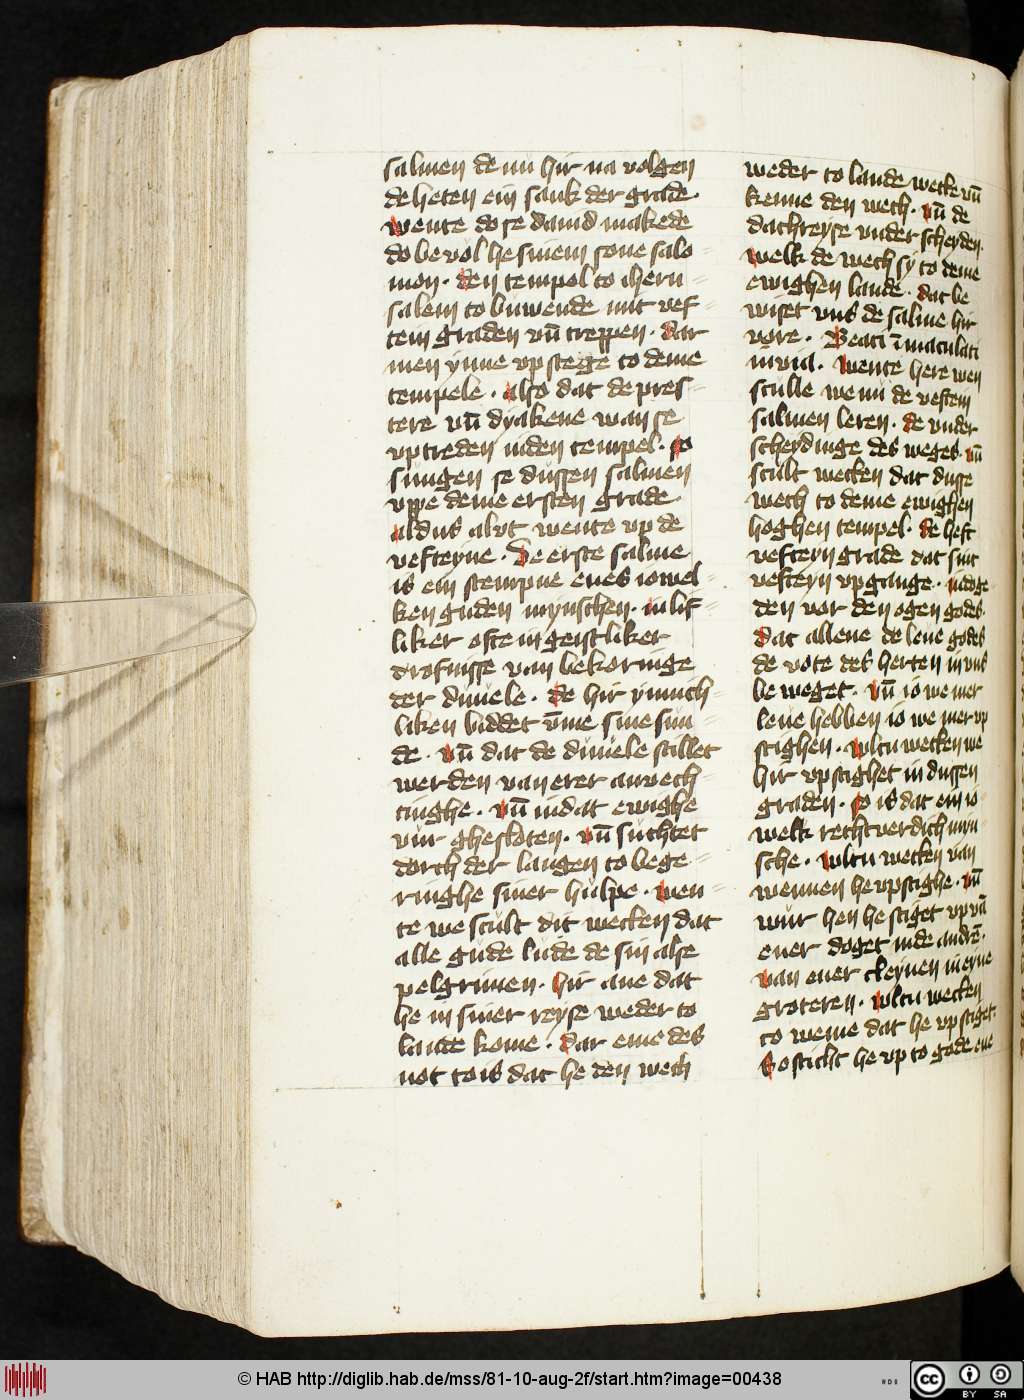 salmen de nu hir na volgen
de heten ein sank der grade.
wente do se dauid makede
do be vol he sinem sone salo
mon. den tempol to iheru
salem to buwende mit vef
tein graden vn̄ treppen. dar
men ynne vp stege to deme
tempele. also dat de pres
tere vn̄ dyakene wan se
vp treden inden tempel. so
sungen se dussen salmen
vppe deme ersten grade
aldus al vt wente vp de
vefteyne. De erste salme
is ein stempne enes iowel
ken guden mynschen. in lif
liker ofte in geistliker
drofnisse van bekoringe
der duuele. de hir ynnich
liken biddet v̄me sine sun
de. vn̄ dat de duuele stillet
werden van erer anvech
tinghe. vn̄ indat ewighe
vur ghesloten. vn̄ suchtet
dorch der langen to bege
ringhe siner hulpe. wen
te we scult dit wecken dat
alle gude lude de sin alse
pelgrimen. hir ane dat
he in siner reyse weder to
lande kome. dar eme des
not to is dat he den wech
weder to lande wecke vn̄
kenne den wech. vn̄ de
dachreyse vnder scheyden.
welk de wech sy to deme
ewighen lande. dat be
wiset vns de salme hir
vore. Beati īmaculati
in via. wente here wen
sculle we nu de veftein
salmen leren. de vnder
scheydinge des weges. vn̄
scult wecken dat dusse
wech to deme ewighen
hoghen tempel. de heft
vefteyn grade dat sint
vefteyn vpgange. in doge
den vor den ogen godes.
dat allene de leue godes
de vote des herten in vns
be weget. vn̄ io we mer
leue hebben io we mer vp
stighen. wltu wecken we
hir vpstighet in dussen
graden. so is dat ein io
welk rechtverdich myn
sche. wltu wecken van
wennen he vpstighe. vn̄
wur hen he stiget vp vā
ener doget in de andrē.
van ener cleynen in eyne
groteren. wltu wecken
to weme dat he vpstiget.
So sticht he vp to gode ene
© HAB http://diglib.hab.de/mss/81-10-aug-2f/start.htm?image=00438
cc BY SA